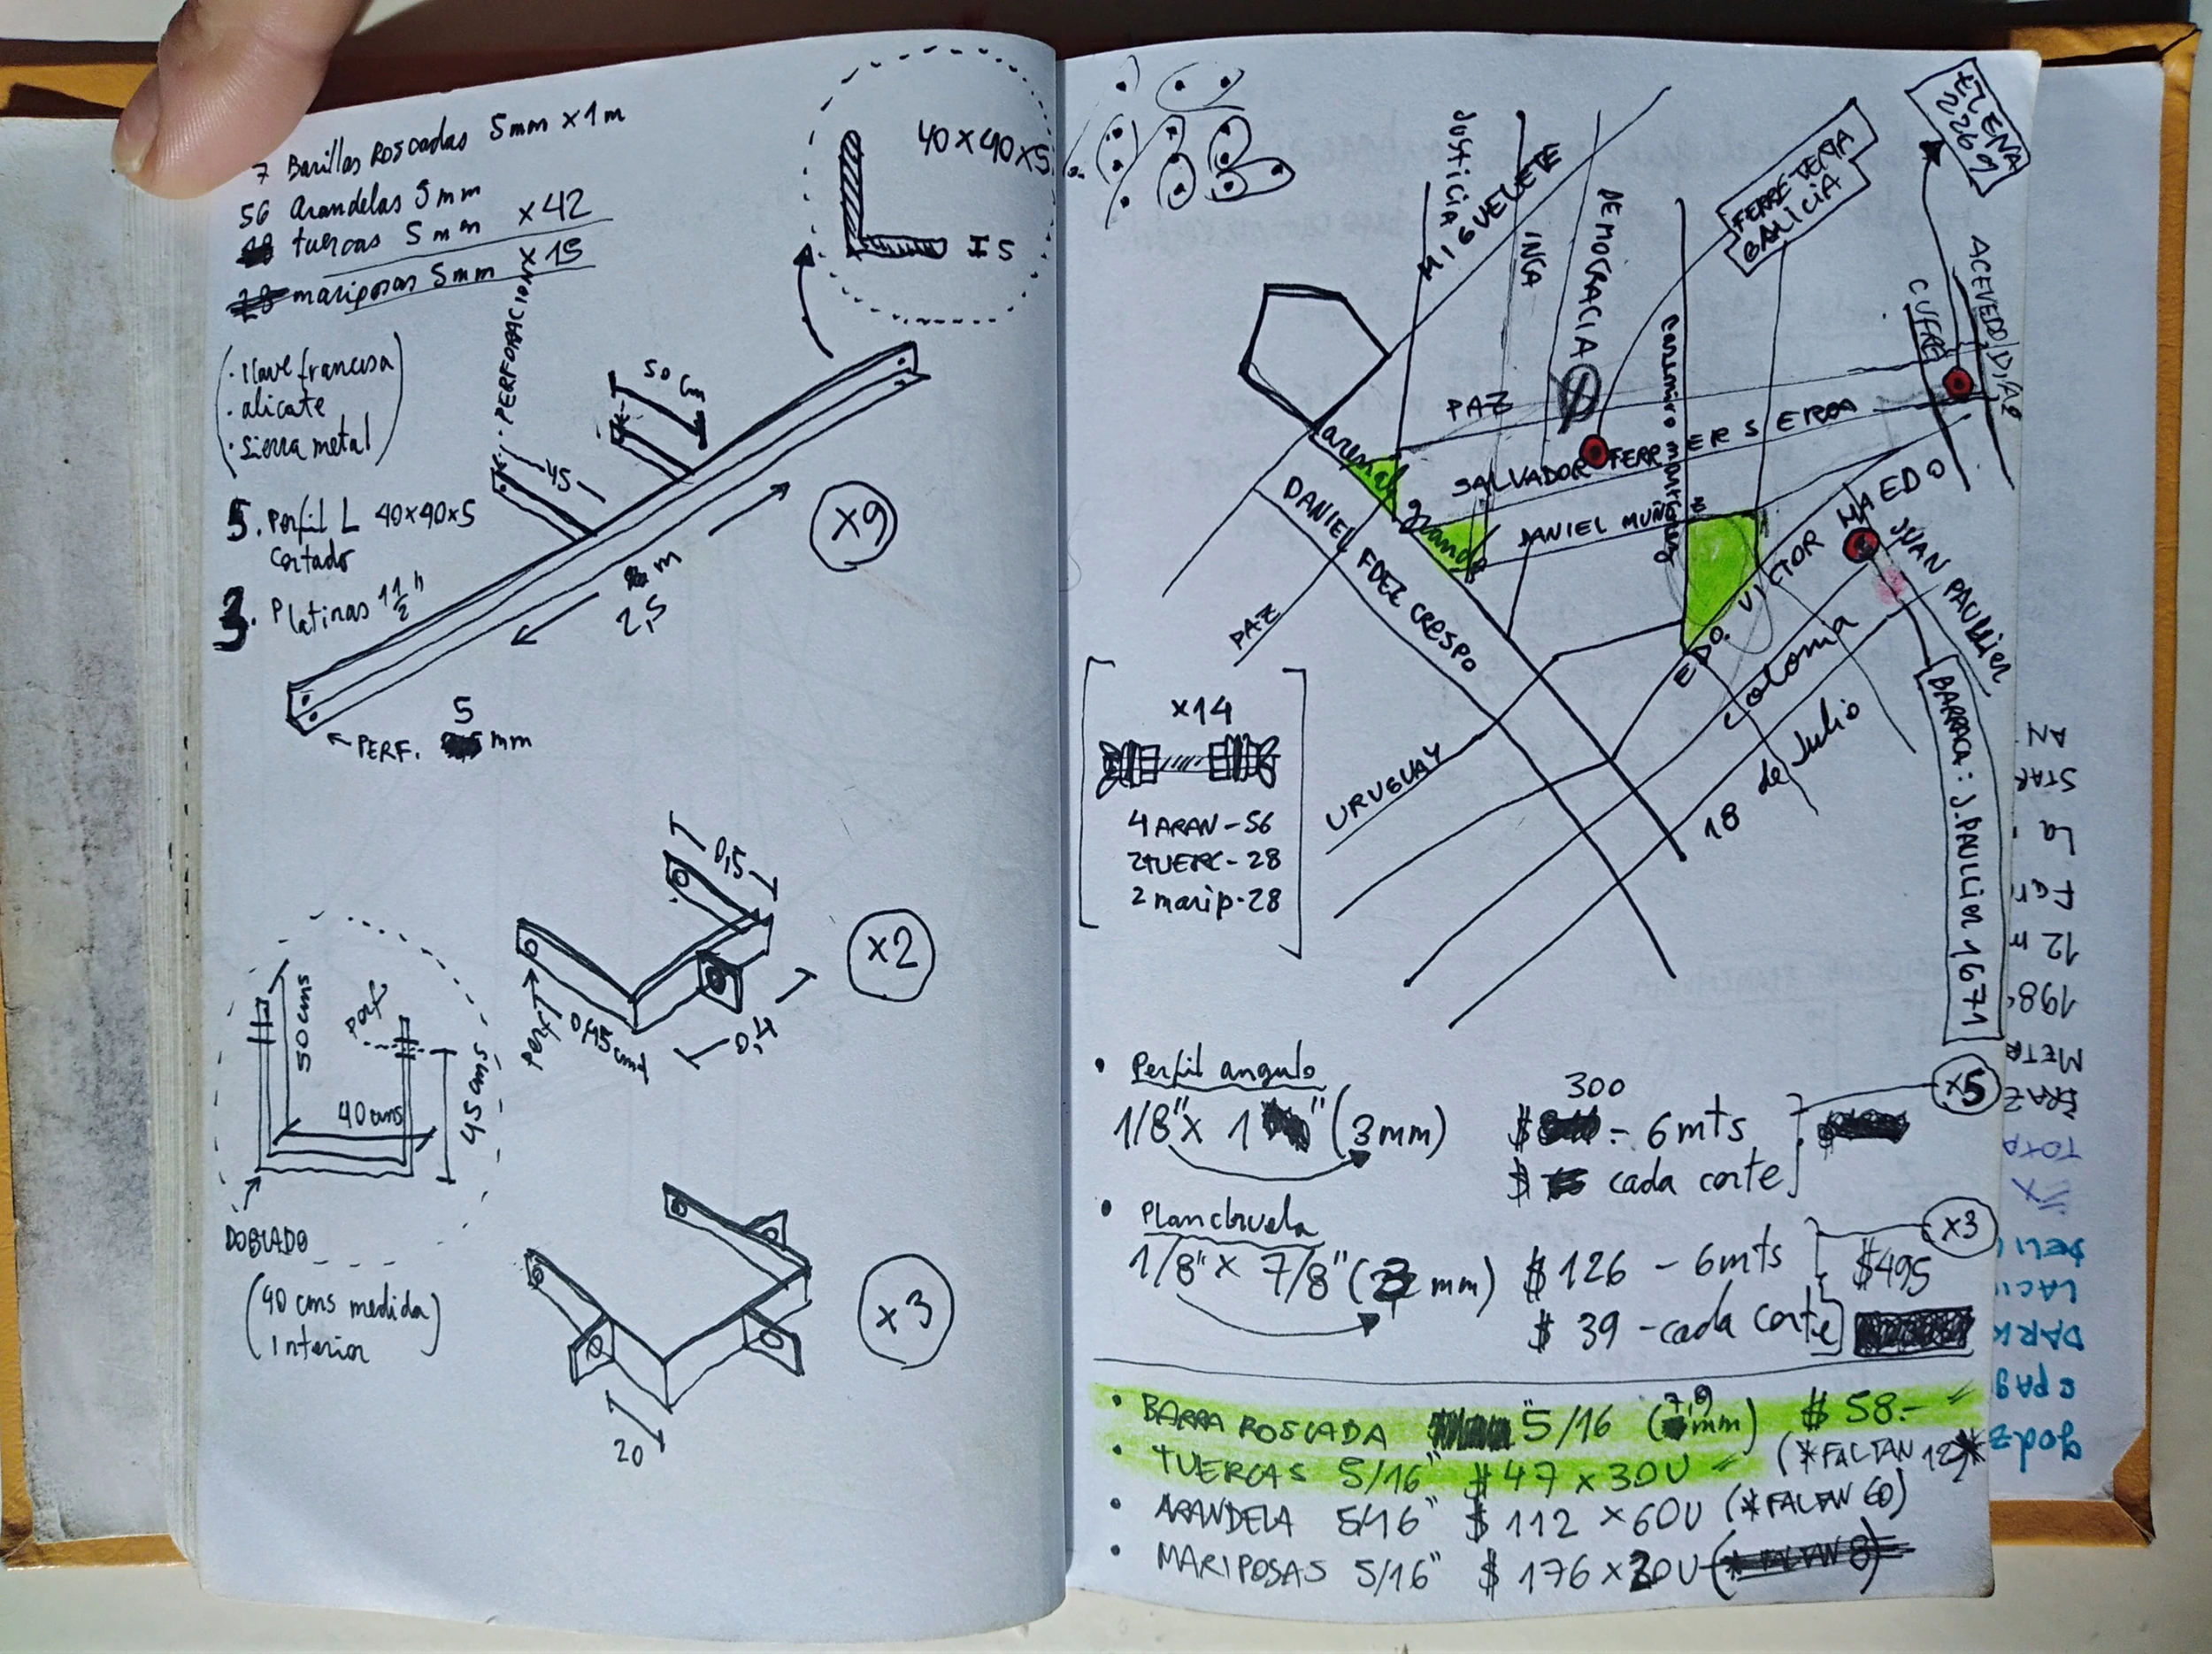 7 Barillas Roscadas 5mm x 1m
56 Arandelas 5mm
tuercas 5mm x 42
mariposas 5mm x 15
40x40x5
I 5
PERFORACION
50 cm
45
· llave francesa
· alicate
· Sierra metal
5. Perfil L 40x40x5
cortado
3. Platinas 1 1/2"
x9
m
2,5
5
PERF. mm
0,5
x2
perf
0,45 cms
0,4
50 cms
perf
40 cms
45 cms
DOBLADO
(40 cms medida
Interior)
x3
20
JUSTICIA
MIGUELETE
INCA
DEMOCRACIA
FERRETERIA
GALICIA
ELLENA
2269
ACEVEDO DIAZ
CUFRE
PAZ
SALVADOR FERRER SERRA
arenal grande
DANIEL MUÑOZ
DANIEL FDEZ CRESPO
PAZ
EDO. VICTOR HAEDO
JUAN PAULLIER
Colonia
18 de Julio
URUGUAY
BARRACA: J. PAULLIER 1671
x14
4 ARAN - 56
2 TUERC - 28
2 marip - 28
· Perfil angulo
1/8" x 1 " (3mm)
300
$ - 6mts
$ cada corte
x5
· Planchuela
1/8" x 7/8" (3 mm)
$ 126 - 6mts
$ 39 - cada corte
$495
x3
· BARRA ROSCADA 5/16 (7,9 mm) $ 58.-
· TUERCAS 5/16" $ 47 x 30U (*FALTAN 12)*
· ARANDELA 5/16" $ 112 x 60U (*FALTAN 60)
· MARIPOSAS 5/16" $ 176 x 20U